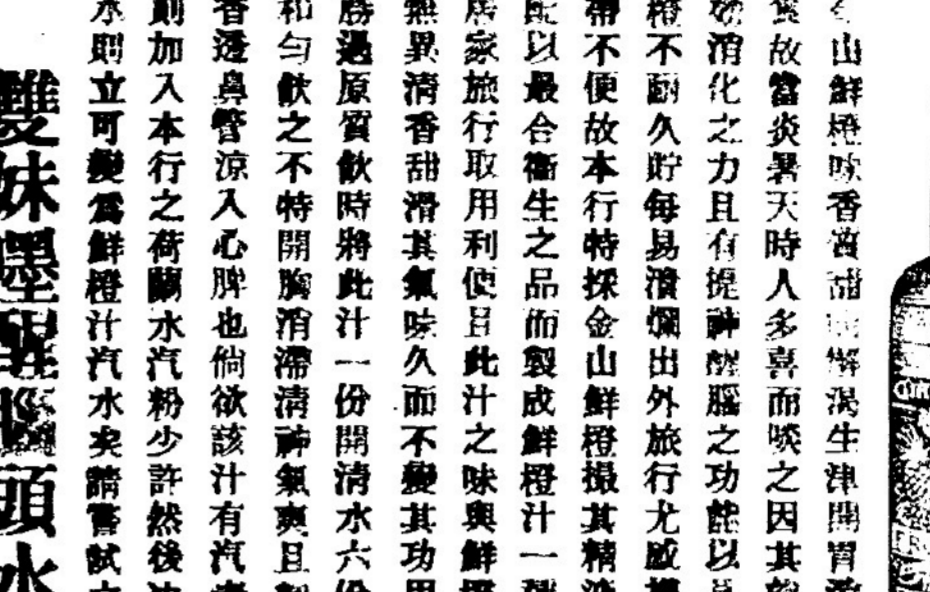 山鮮橙味香茜甜而解渴生津開胃
故當炎暑天時人多喜而啖之因其
消化之力且有提神醒腦之功能以
橙不耐久貯每易潰爛出外旅行尤感
帶不便故本行特採金山鮮橙撮其精
配以最合衞生之品而製成鮮橙汁一
居家旅行取用利便且此汁之味與鮮
無異清香甜滑其氣味久而不變其功用
勝過原質飲時將此汁一份開清水六份
和勻飲之不特開胸消滯清神氣爽且
香透鼻管涼入心脾也倘欲該汁有汽
則加入本行之荷蘭水汽粉少許然後
水則立可變爲鮮橙汁汽水矣請嘗試
雙妹嚜醒腦頭水